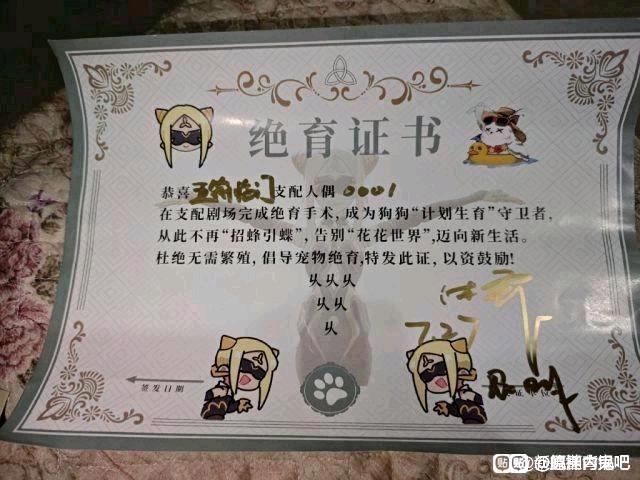 绝育证书
恭喜 支配人偶 0001
在支配剧场完成绝育手术,成为狗狗“计划生育”守卫者,
从此不再“招蜂引蝶”,告别“花花世界”,迈向新生活。
杜绝无需繁殖,倡导宠物绝育,特发此证,以资鼓励!
乆乆乆
乆乆
乆
7.27
签发日期